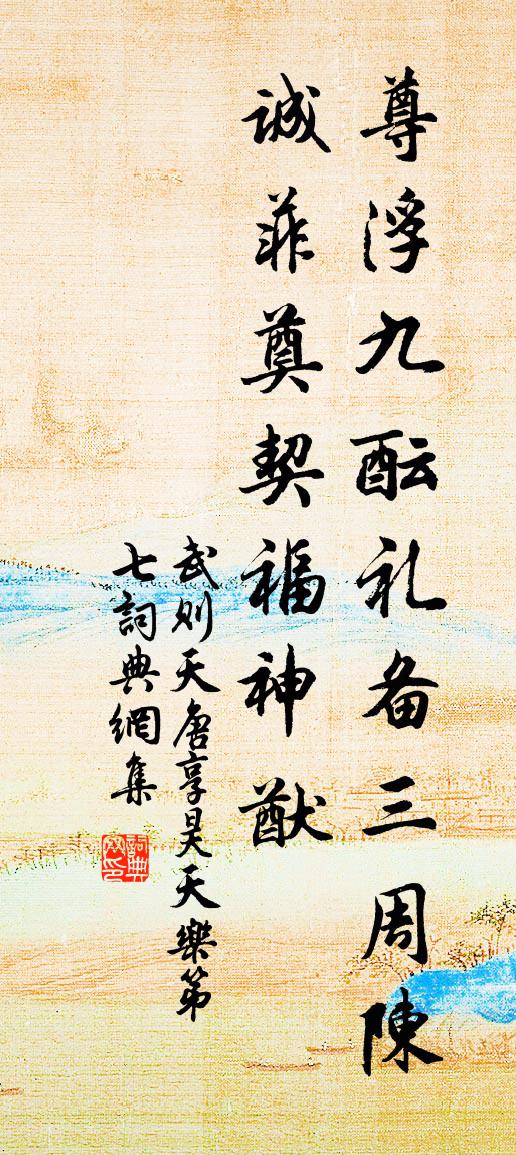 尊浮九酝礼备三周陳
诚菲奠契福神猷
武则天唐享昊天樂第
七詞典網集
詞典